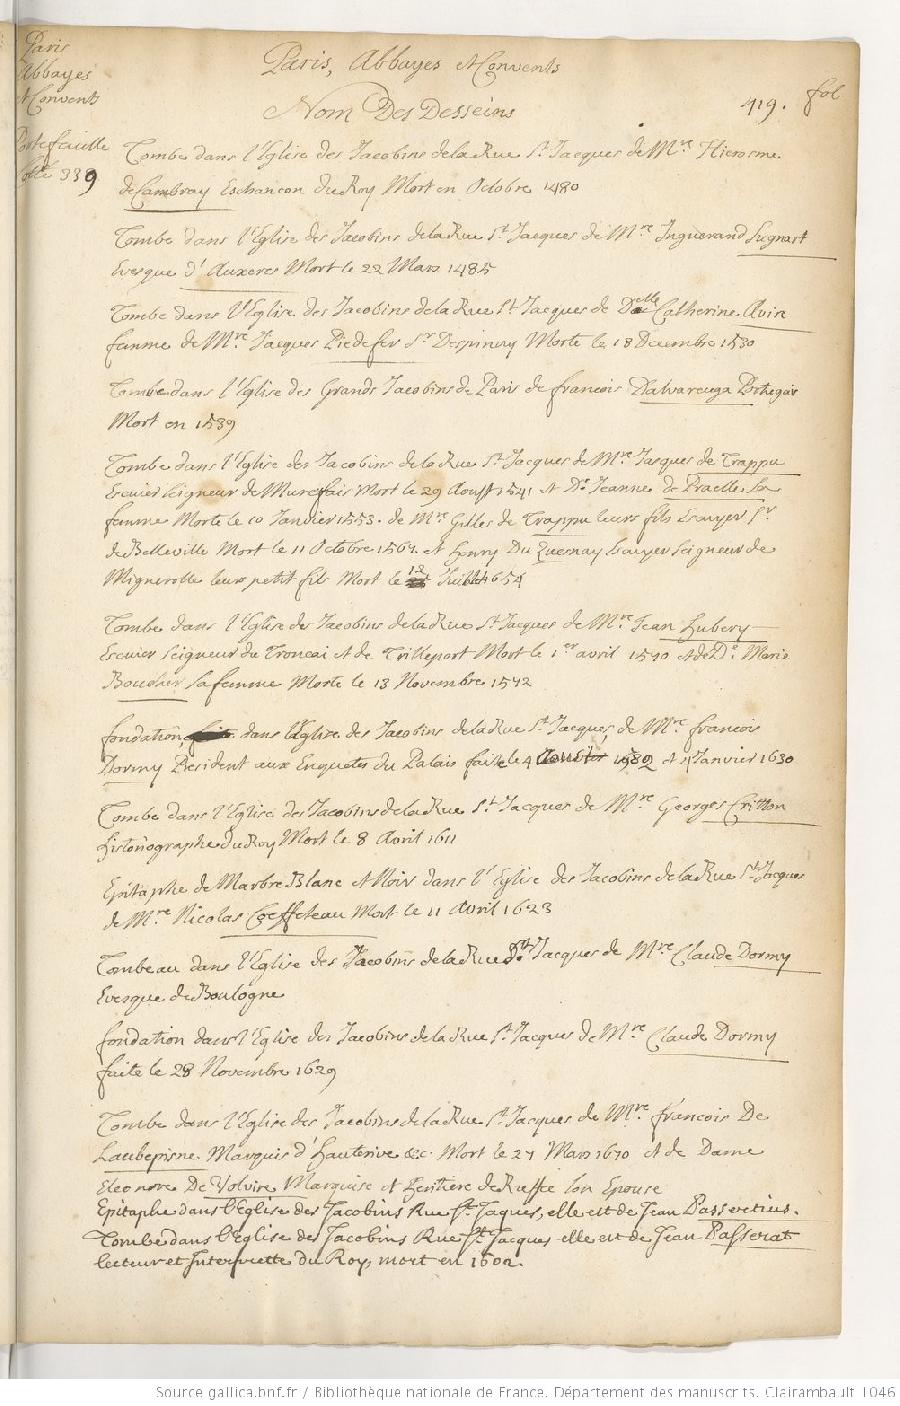 Paris
Abbayes
et Convents
Portefeuille
Cotté 339
Paris, Abbayes et Convents
Nom Des Desseins
419. fol
Tombe dans l'Eglise des Jacobins de la Rue St Jacques de Mre Hierosme
de Cambray Eschancon du Roy Mort en Octobre 1480
Tombe dans l'Eglise des Jacobins de la Rue St Jacques de Mre Inguerand Sugnart
Evesque d'Auxerre Mort le 22 Mars 1485
Tombe dans l'Eglise des Jacobins de la Rue St Jacques de Delle Catherine Avin
femme de Mre Jacques Piedefer Sr Despinuy Morte le 18 Decembre 1530
Tombe dans l'Eglise des Grands Jacobins de Paris de francois Dalvarenga Portugais
Mort en 1539
Tombe dans l'Eglise des Jacobins de la Rue St Jacques de Mre Jacques de Trappu
Escuier Seigneur de Mort le 29 Aoust 1541 et De Jeanne de Praelles sa
femme Morte le 10 Janvier 1553. de Mre Gilles de Trappu leurs fils Escuyer Sr
de Belleville Mort le 11 Octobre 1567. et henry Du Quesnay Escuyer Seigneur de
Mignerolle leur petit fils Mort le 12 Juillet 1654
Tombe dans l'Eglise des Jacobins de la Rue St Jacques de Mre Jean hubery
Escuier Seigneur du Troncai et de Trilleport Mort le 1er avril 1540 et de De Marie
Boucher sa femme Morte le 13 Novembre 1542
fondation, dans l'Eglise des Jacobins de la Rue St Jacques, de Mre francois
Dormy President aux Enquetes du Palais faite le 4 1582 et 4 Janvier 1630
Tombe dans l'Eglise des Jacobins de la Rue St Jacques de Mre Georges Critton
historiographe du Roy Mort le 8 Avril 1611
Epitaphe de Marbre Blanc et Noir dans l'Eglise des Jacobins de la Rue St Jacques
de Mre Nicolas Coeffeteau Mort le 11 Avril 1623
Tombeau dans l'Eglise des Jacobins de la Rue St Jacques de Mre Claude Dormy
Evesque de Boulogne
fondation dans l'Eglise des Jacobins de la Rue St Jacques de Mre Claude Dormy
faite le 28 Novembre 1629
Tombe dans l'Eglise des Jacobins de la Rue St Jacques de Mre francois De
Laubespine. Marquis d'hauterive &c. Mort le 27 Mars 1670 et de Dame
Eleonore De Volvire Marquise et heritiere de Ruffec son Epouse
Epitaphe dans l'Eglise des Jacobins Rue St Jaques, elle est de Jean Passeretius.
Tombe dans l'Eglise des Jacobins Rue St Jacques elle est de Jean Passerat
lecteur et Interprette du Roy, mort en 1602.
Source gallica.bnf.fr / Bibliothèque nationale de France. Département des manuscrits. Clairambault 1046